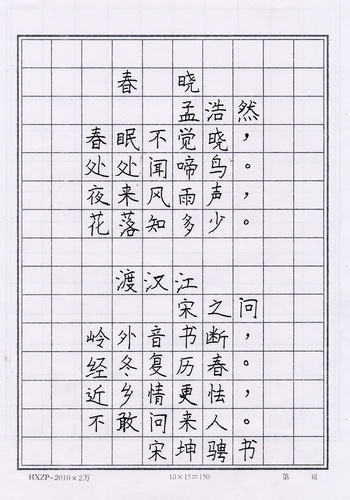 春 晓
孟浩然
春眠不觉晓，
处处闻啼鸟。
夜来风雨声，
花落知多少。
渡汉江
宋之问
岭外音书断，
经冬复历春。
近乡情更怯，
不敢问来人。
宋坤骋书
HXZP-2010×2万 10×15=150 第 页